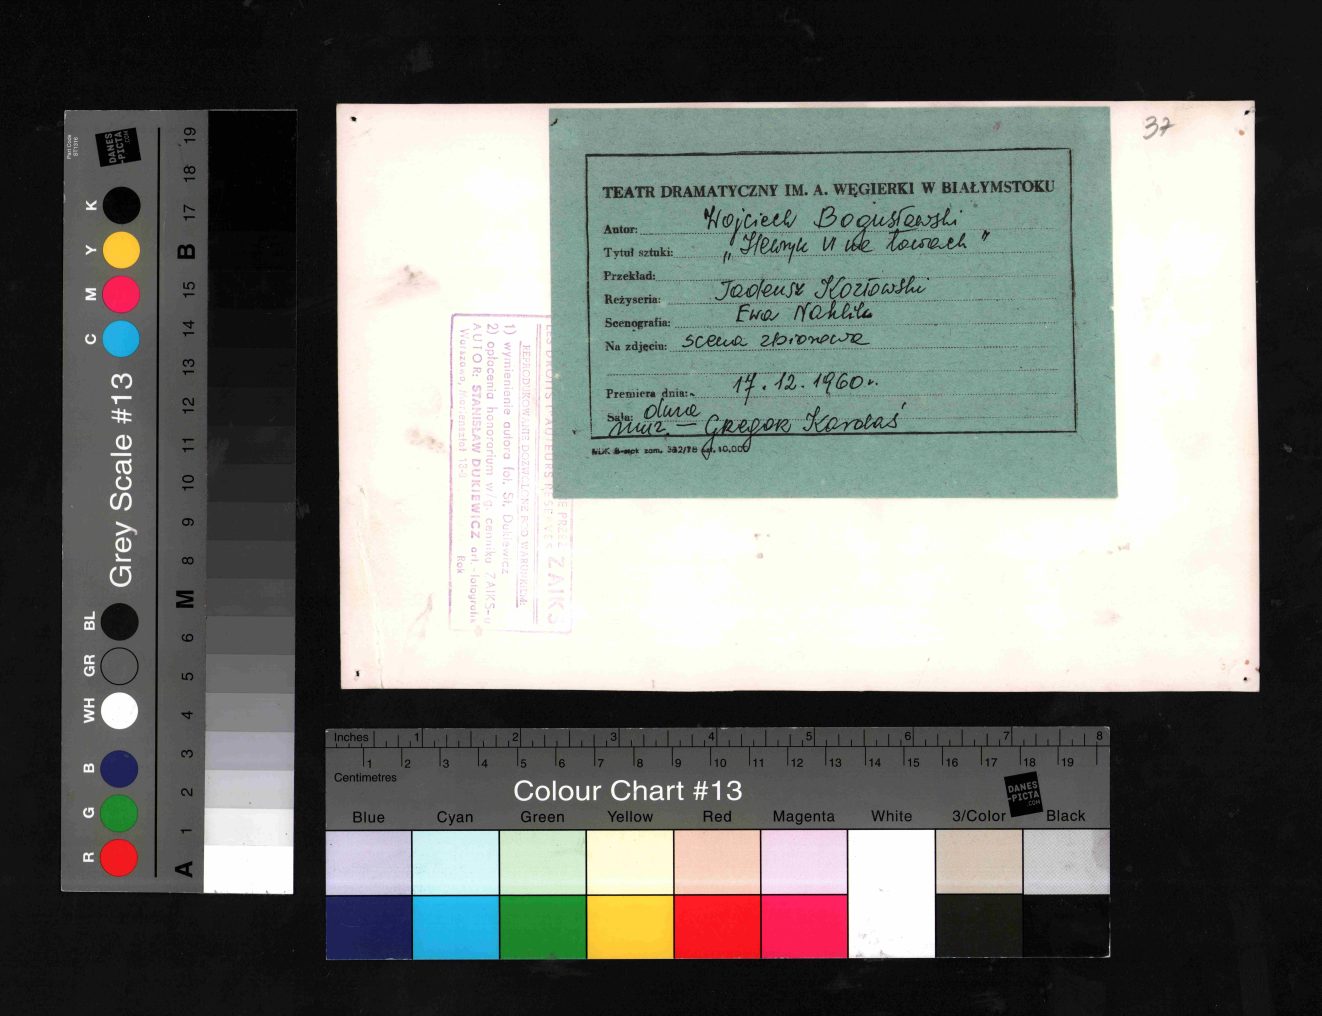 37
TEATR DRAMATYCZNY IM. A. WĘGIERKI W BIAŁYMSTOKU
Autor: Wojciech Bogusławski
Tytuł sztuki: „Henryk VI na łowach"
Przekład:
Reżyseria: Tadeusz Kozłowski
Scenografia: Ewa Nahlik
Na zdjęciu: scena zbiorowa
Premiera dnia: 17.12.1960r.
Sala: duża
muz. — Gregor Kardaś
zam. 382/78 10.000
ZAIKS
REPRODUKOWANIE DOZWOLONE POD WARUNKIEM:
1) wymienienie autora fot. St. Dukiewicz
2) opłacenia honorarium w/g. cennika ZAIKS-u
AUTOR: STANISŁAW DUKIEWICZ art. - fotografik
Warszawa, Mariensztat 18
Rok
Part Code
ST1316
DANES
-PICTA
.COM
Grey Scale #13
K
Y
M
C
BL
GR
WH
B
G
R
19
18
17
B
15
14
13
12
11
10
9
8
M
6
5
4
3
2
1
A
Inches 1 2 3 4 5 6 7 8
1 2 3 4 5 6 7 8 9 10 11 12 13 14 15 16 17 18 19
Centimetres
Colour Chart #13
DANES
-PICTA
.COM
Blue Cyan Green Yellow Red Magenta White 3/Color Black